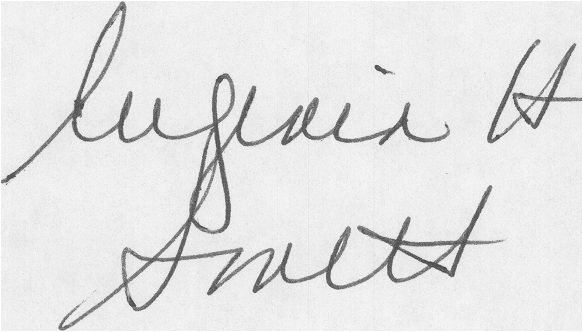 Eugenia H
Smett